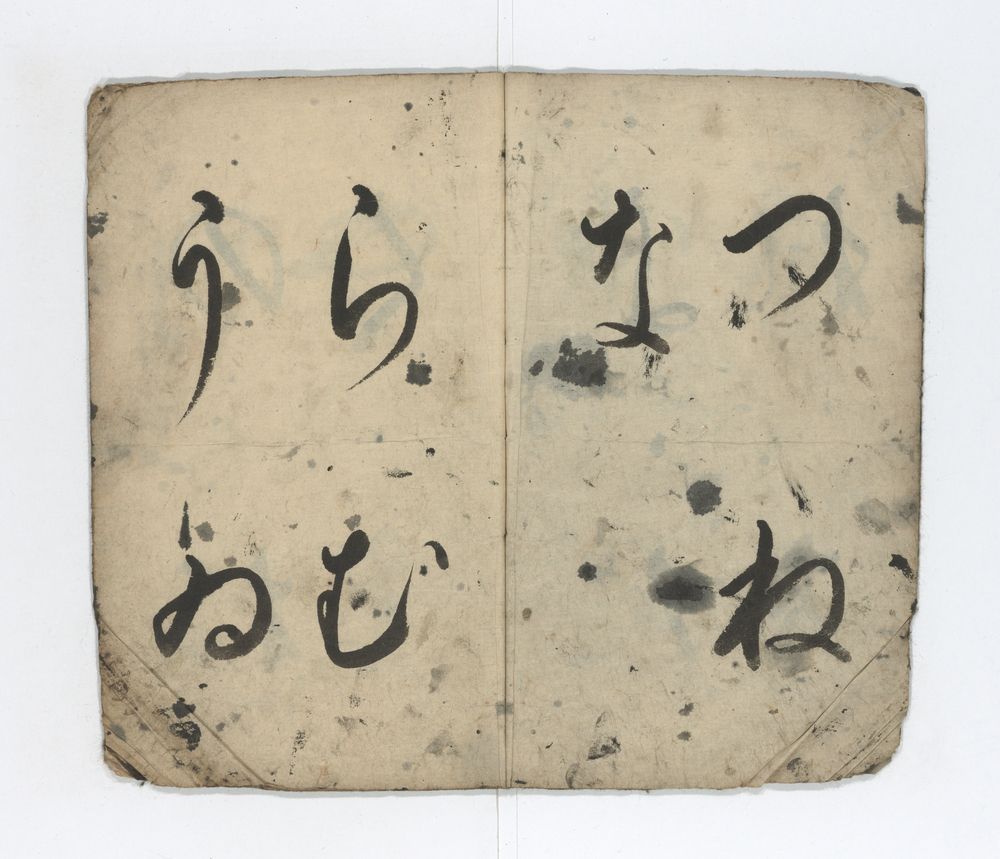 つね
な
らむ
うゐ